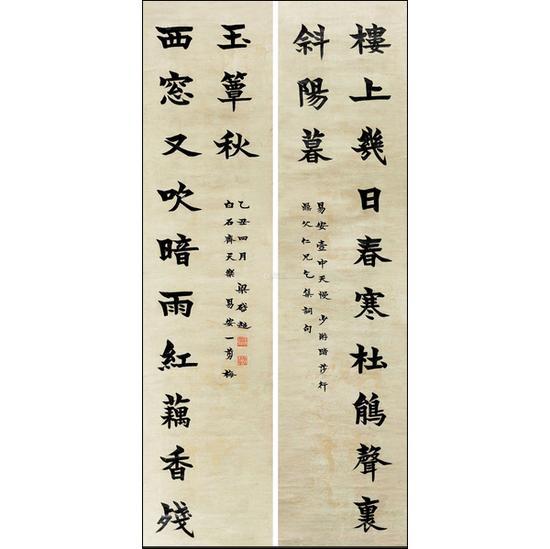 樓上幾日春寒杜鵑聲裏
斜陽暮
易安壺中天慢 少游踏莎行
父仁兄乞集詞句
西窓又吹暗雨紅藕香殘
玉簟秋
白石齊天樂 易安一剪梅
乙丑四月 梁啓超